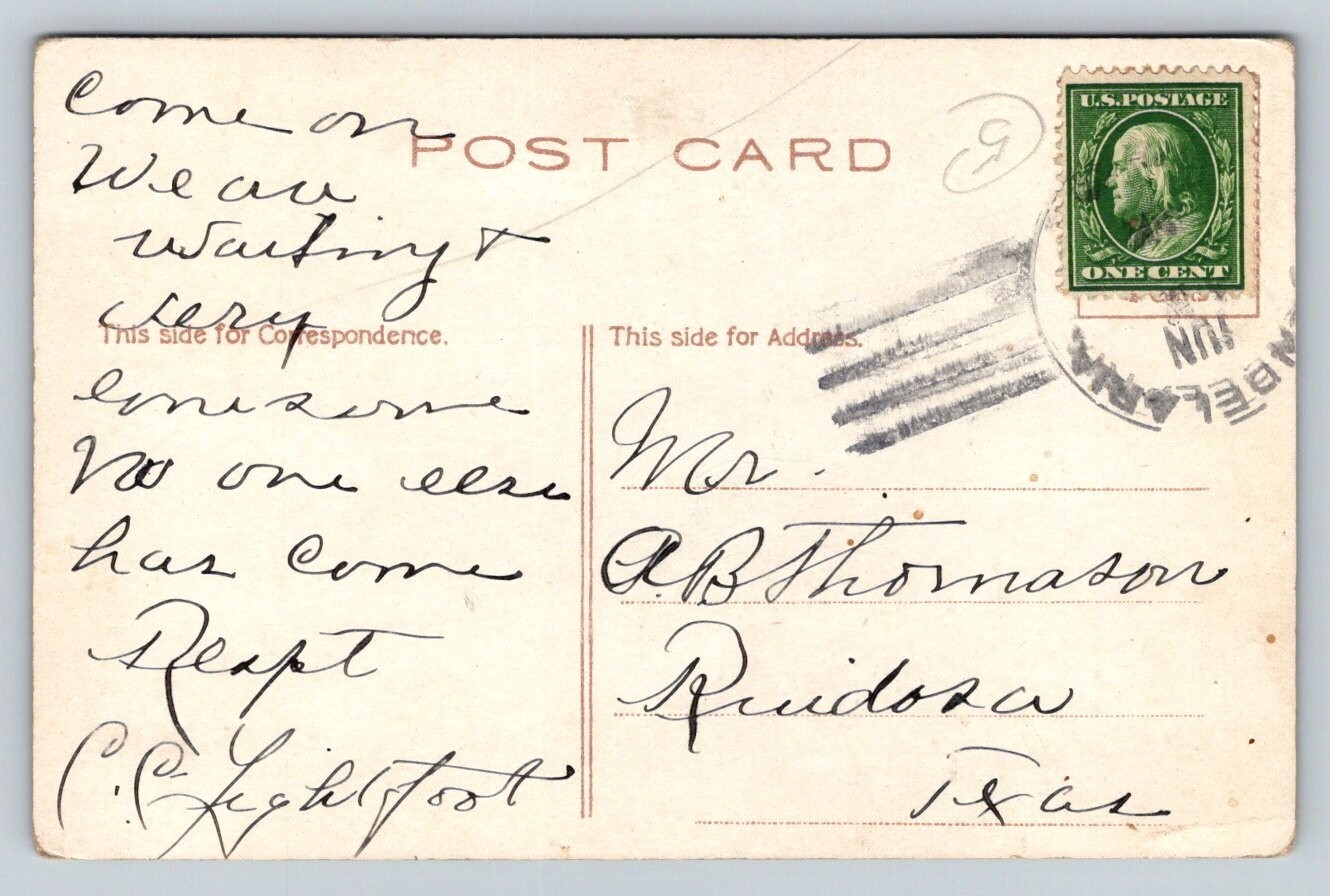 Come on
We are
Waiting &
very
lonesome
No one else
has Come
Respt
C.C. Lightfoot
POST CARD
This side for Correspondence.
This side for Address.
U.S. POSTAGE
ONE CENT
JUN
CANDELARIA
Mr.
A.B Thomason
Ruidosa
Texas